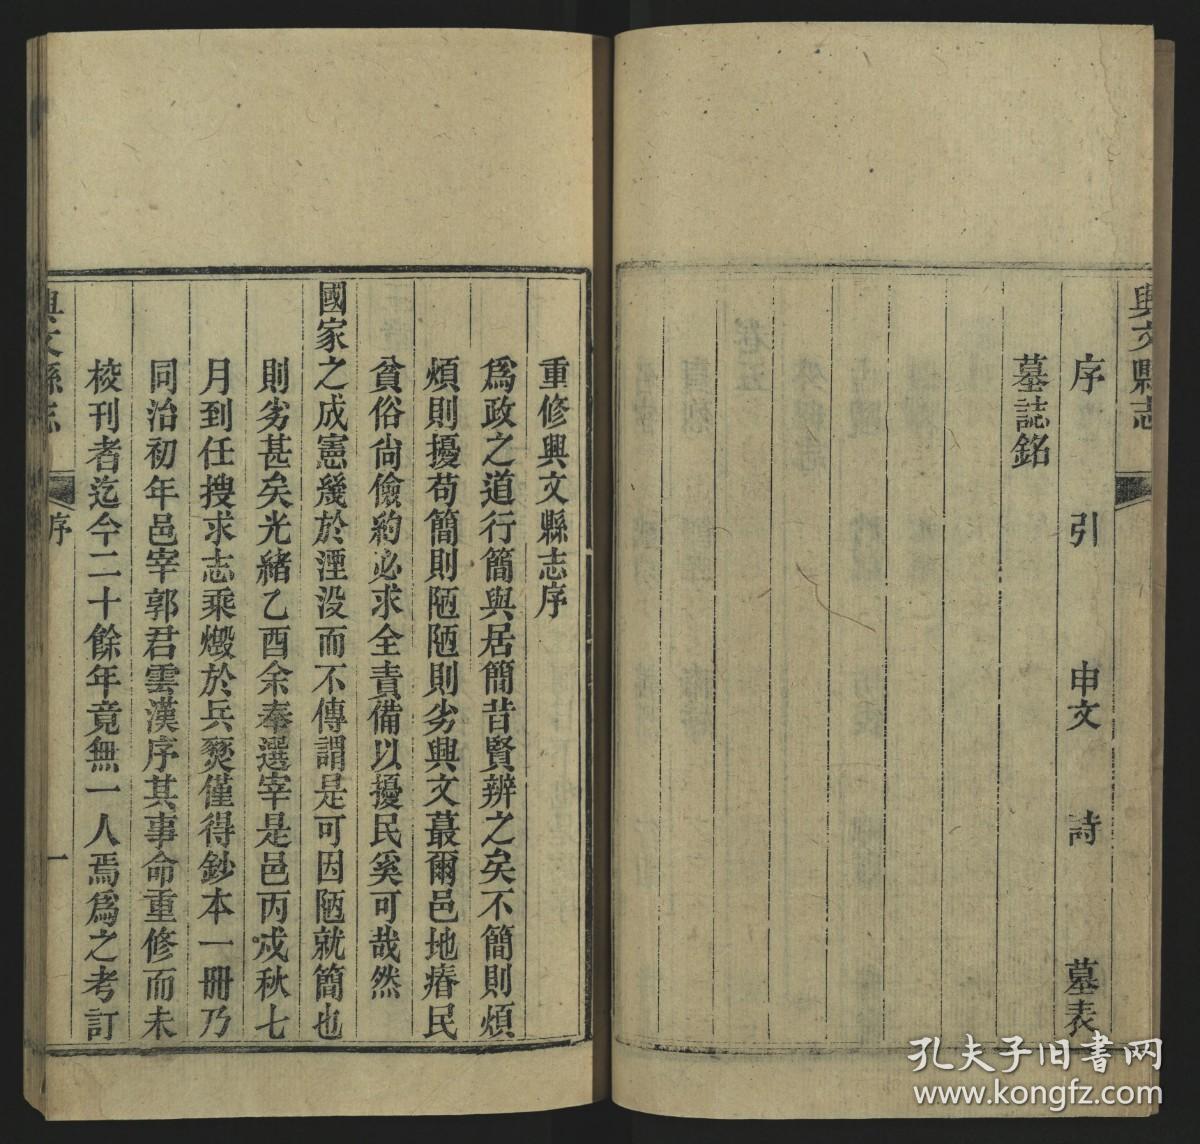 興文縣志
序 引 申文 詩 墓表
墓誌銘
重修興文縣志序
爲政之道行簡與居簡昔賢辨之矣不簡則煩
煩則擾苟簡則陋陋則劣興文蕞爾邑地瘠民
貧俗尙儉約必求全責備以擾民奚可哉然
國家之成憲幾於湮没而不傳謂是可因陋就簡也
則劣甚矣光緒乙酉余奉選宰是邑丙戍秋七
月到任搜求志乘燬於兵燹僅得鈔本一冊乃
同治初年邑宰郭君雲漢序其事命重修而未
校刊者迄今二十餘年竟無一人焉爲之考訂
興文縣志 序 一
孔夫子旧书网
www.kongfz.com